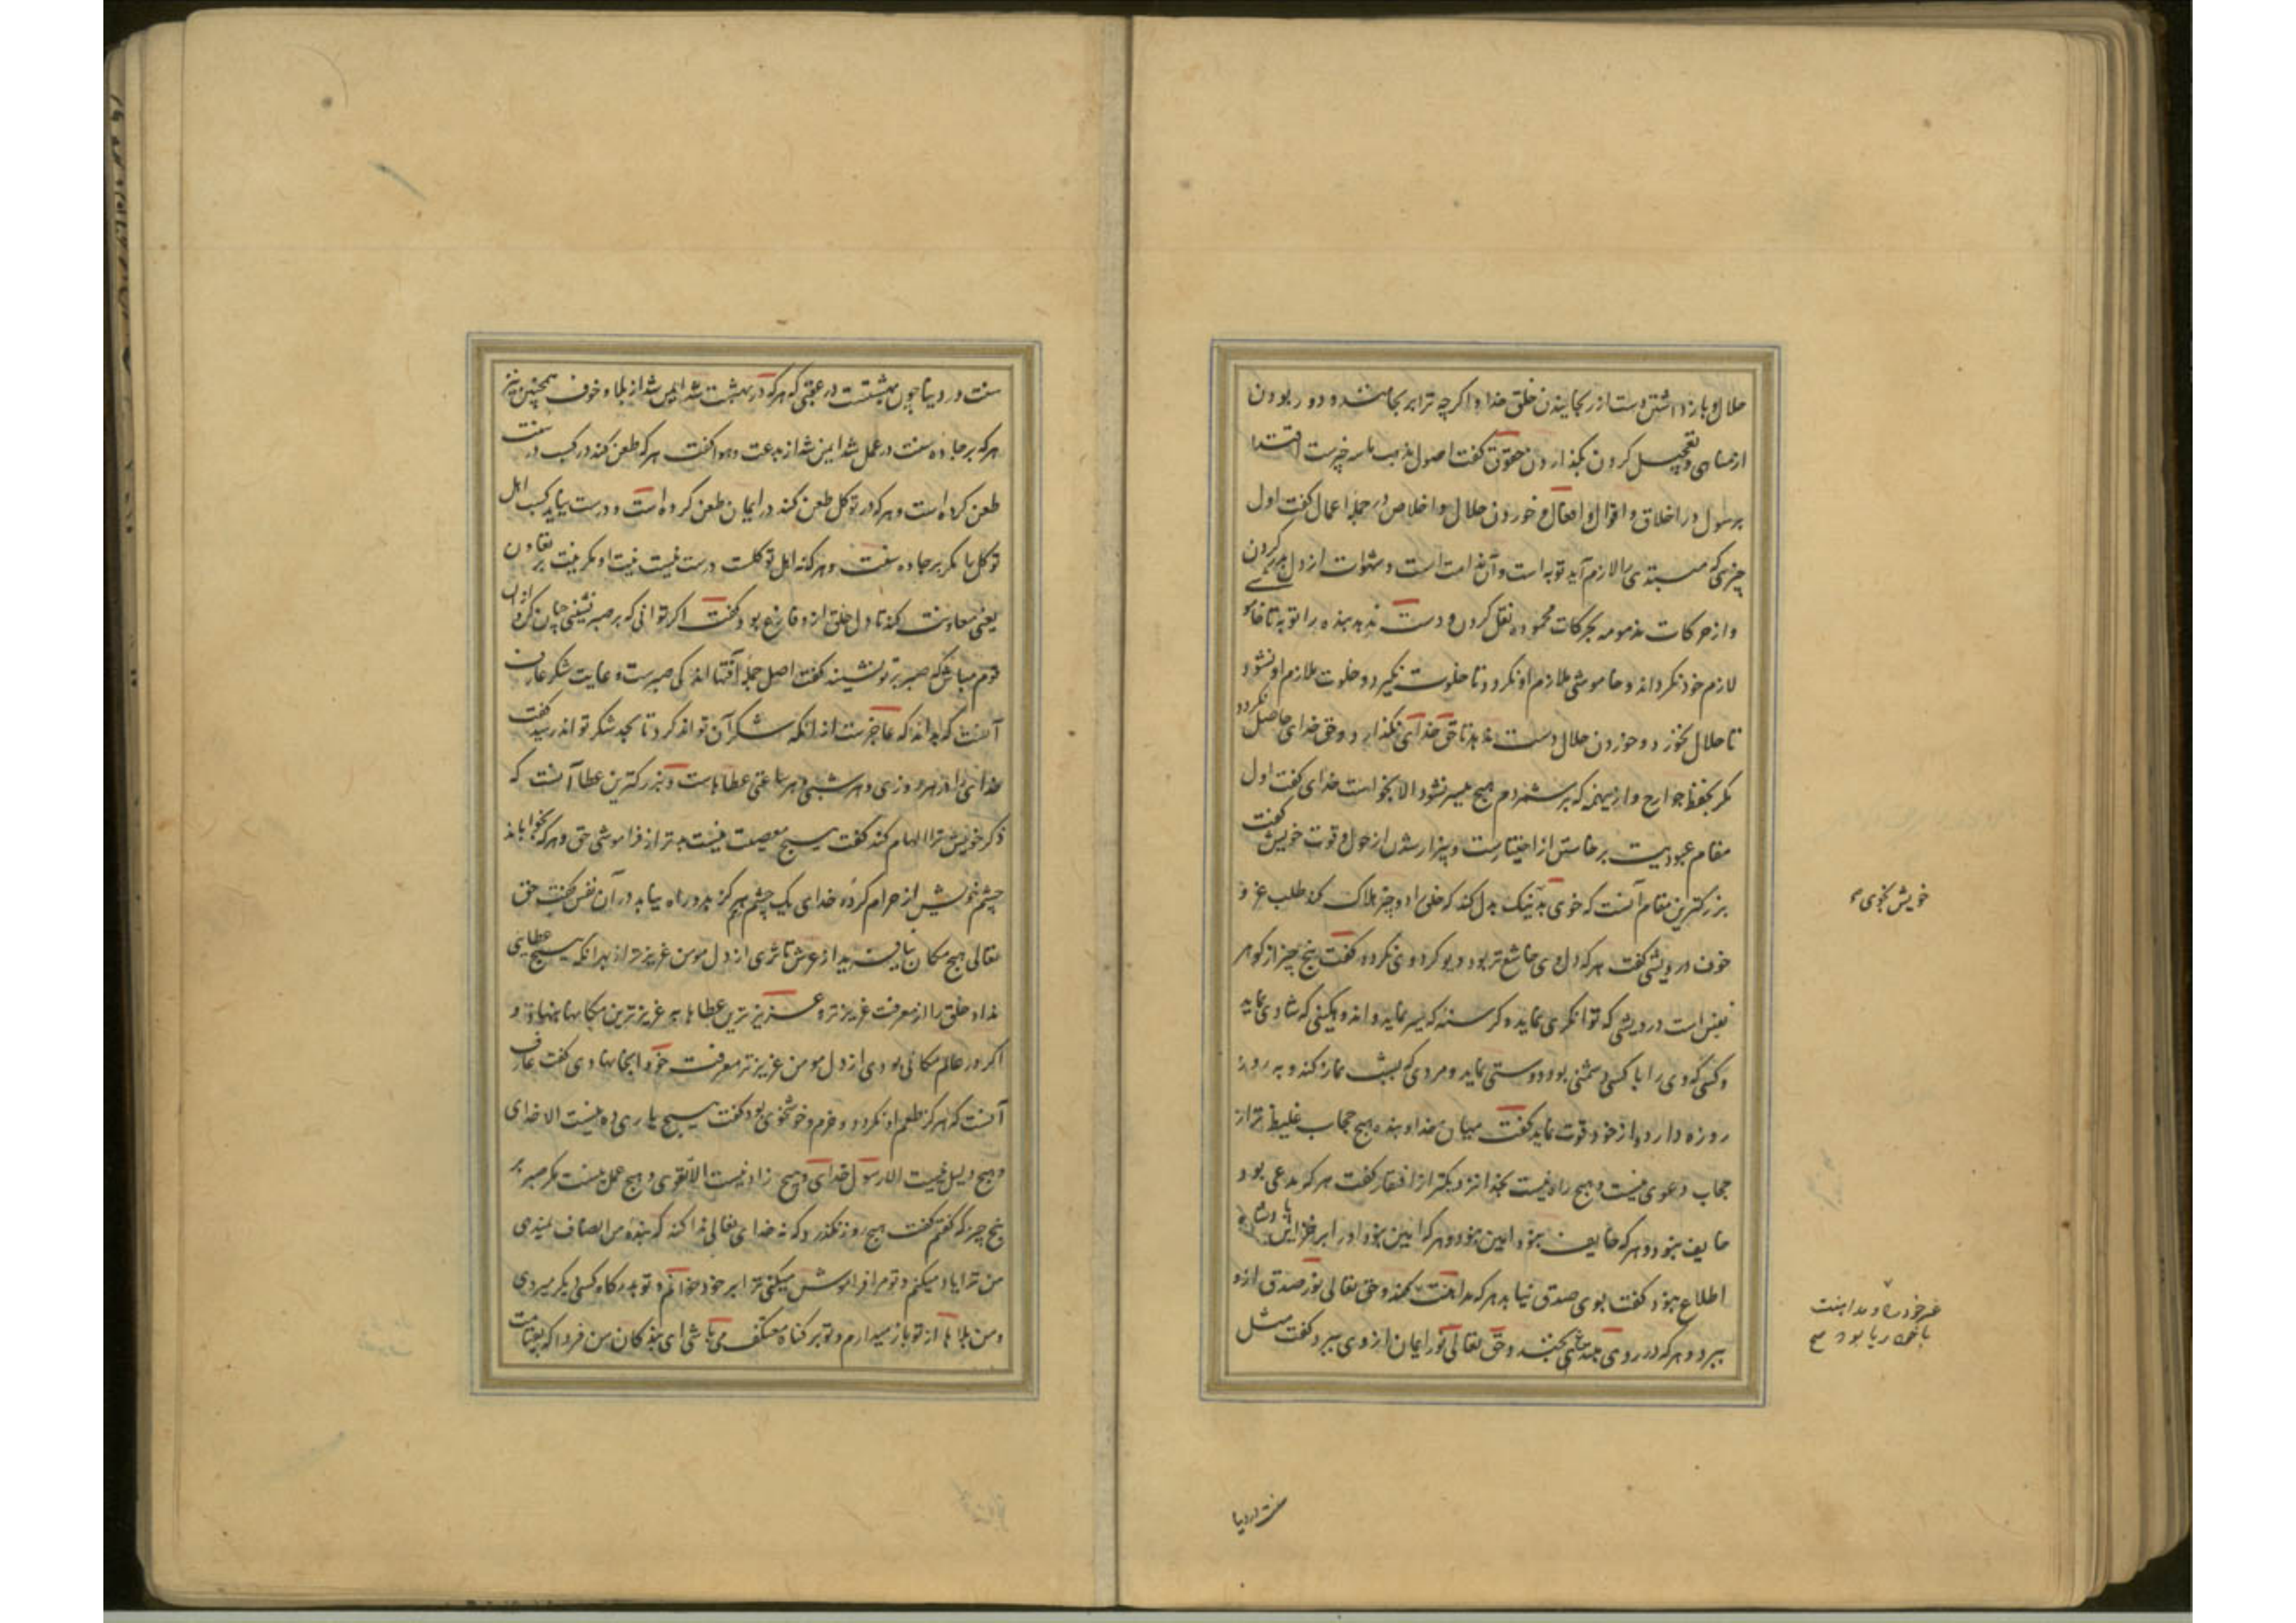 حلال و باز داشتن دست از رنجانیدن خلق خدا و اگرچه ترا برنجانند و دور بودن
از مناهی و تعجیل کردن بگذاردن حقوق گفت اصول مذهب ما سه چیزست اقتدا
برسول در اخلاق و اقوال و افعال و خوردن حلال و اخلاص در جمله اعمال گفت اول
چیزی که مبتدی را لازم آید توبه است و آن ندامت است و شهوات از دل برکردن
و از حرکات مذمومه بحرکات محموده نقل کردن و دست ندهد بنده را توبه تا خاموشی
لازم خود نگرداند و خاموشی ملازم او نگردد تا خلوت نگیرد و خلوت ملازم او نشود
تا حلال نخورد و خوردن حلال دست ندهد تا حق خدای نگذارد و حق خدای حاصل نگردد
مگر بحفظ جوارح و ازینها که برشمردم هیچ میسر نشود الا بخواست خدای گفت اول
مقام عبودیت برخاستن از اختیارست و بیزار شدن از حول و قوت خویش گفت
بزرگترین مقام آنست که خوی بد بنیک بدل کند که خلق را دو چیز هلاک کند طلب عز و
خوف درویشی گفت هرکه دل وی خاشع تر بود دیو گرد وی نگردد گفت پنج چیز از گوهر
نفس است درویشی که توانگری نماید و گرسنه که سیر نماید و اندوهگینی که شادی نماید
و کسی که وی را با کسی دشمنی بود و دوستی نماید و مردی که بشب نماز کند و به روز
روزه دارد و از خود قوت نماید گفت میان خدا و بنده هیچ حجاب غلیظ تر از
حجاب دعوی نیست و هیچ راه نیست بخدا نزدیکتر از افتقار گفت هرکه مدعی بود
خایف نبود و هرکه خایف نبود امین نبود و هرکه امین نبود او را بر خزاین پادشاه
اطلاع نبود گفت بوی صدق نیابد هرکه مداهنت کند و حق تعالی نور صدق ازو
ببرد و هرکه در روی مبتدعی بخندد حق تعالی نور ایمان از وی ببرد گفت مثل
خویش نخوی
غیر خود را و مداهنت
با خود ریا بود
سنت در دنیا
سنت در دنیا چون بهشتست در عقبی که هرکه در بهشت شد ایمن شد از بلا و خوف همچنین نیز
هرکه بر جاده سنت در عمل شد ایمن شد از بدعت و هوا گفت هرکه طعن کند در کسب در سنت
طعن کرده است و هرکه در توکل طعن کند در ایمان طعن کرده است و درست نیاید کسب اهل
توکل را مگر بر جاده سنت و هرکه نه اهل توکلست درست نیست نیت او مگر نیت بر تعاون
یعنی معاونت کند تا دل خلق ازو فارغ بود گفت اگر توانی که بر صبر نشینی چنان کن و از آن
قوم مباش که صبر بر تو نشیند گفت اصل جمله آفتها اندکی صبرست و غایت شکر عارف
آنست که بداند که عاجزست از آنکه شکر آن تواند کرد تا بحد شکر تواند رسید گفت
خدای را در هر روزی و هر شبی و هر ساعتی عطاهاست و بزرگترین عطا آنست که
ذکر خویش ترا الهام کند گفت هیچ معصیت نیست بدتر از فراموشی حق و هرکه بخواباند
چشم خویش از حرام کرده خدای یک چشم هرگز بدو راه نیابد در آن نفس گفت حق
تعالی هیچ مکان نیافرید از عرش تا ثری از دل مومن عزیزتر از بهر آنکه هیچ عطایی
نداد خلق را از معرفت عزیزتر و عزیزترین عطاها به عزیزترین مکانها بنهاد و
اگر در عالم مکانی بودی از دل مومن عزیزتر معرفت خود آنجا نهادی گفت عارف
آنست که هرگز طعم او نگردد و خرم و خوشخوی بود گفت هیچ یاری ده نیست الا خدای
و هیچ دلیل نیست الا رسول خدای و هیچ زاد نیست الا تقوی و هیچ عمل نیست مگر صبر بر
پنج چیز که گفتم گفت هیچ روز نگذرد که نه خدای تعالی ندا کند که بنده من انصاف نمیدهی
من ترا یاد میکنم و تو مرا فراموش میکنی ترا بر خود خوانم و تو بدرگاه کسی دیگر میروی
و من بلاها از تو باز میدارم و تو بر گناه معتکف می باشی ای بندگان من فردا که بقیامت